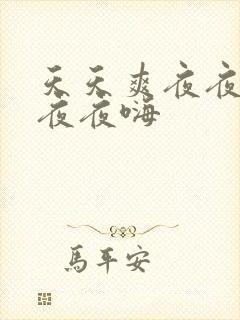 天天爽夜夜
夜夜嗨
馬平安